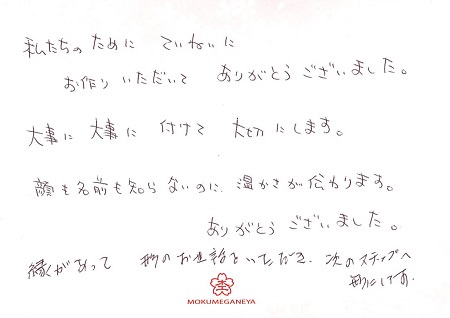 私たちの ために ていねいに
お作り いただいて ありがとう ございました。
大事に 大事に 付けて 大切にします。
顔も名前も知らないのに、温かさが伝わります。
ありがとう ございました。
縁があって お いただき、次のステップへ
MOKUMEGANEYA